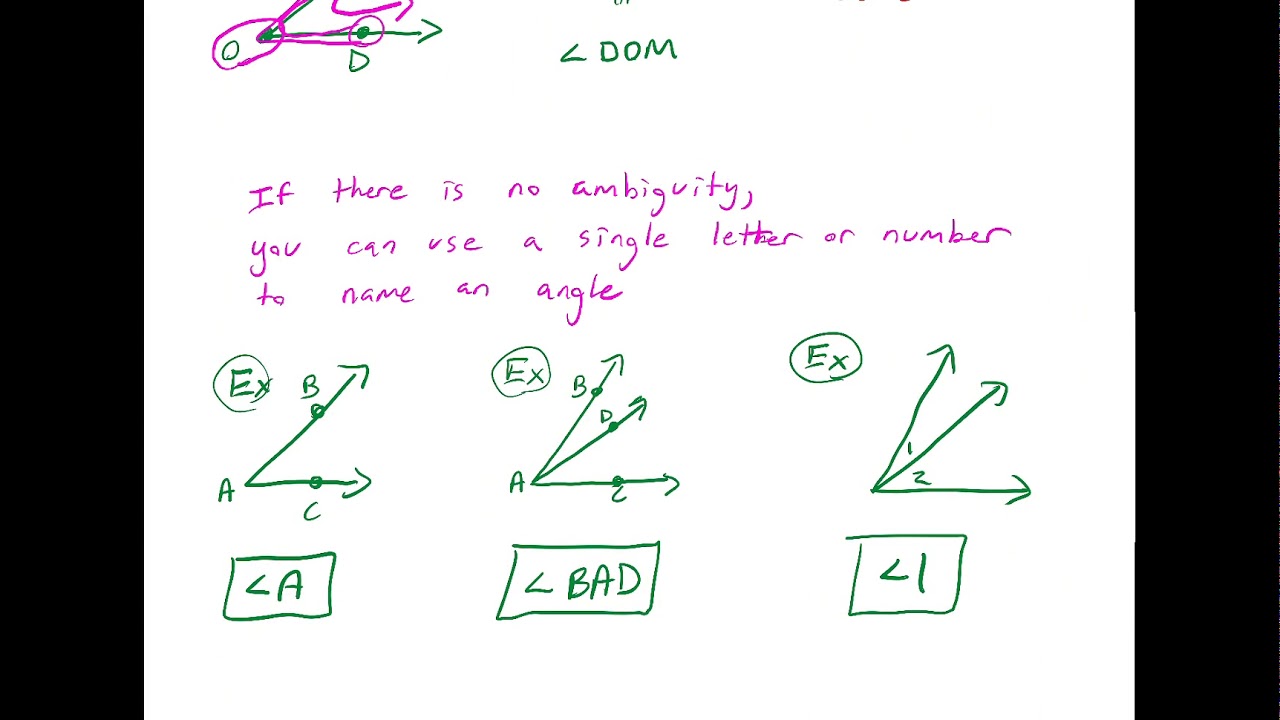 O
D
∠ DOM
If there is no ambiguity,
you can use a single letter or number
to name an angle
Ex
B
A
C
∠A
Ex
B
D
A
C
∠ BAD
Ex
1
2
∠1